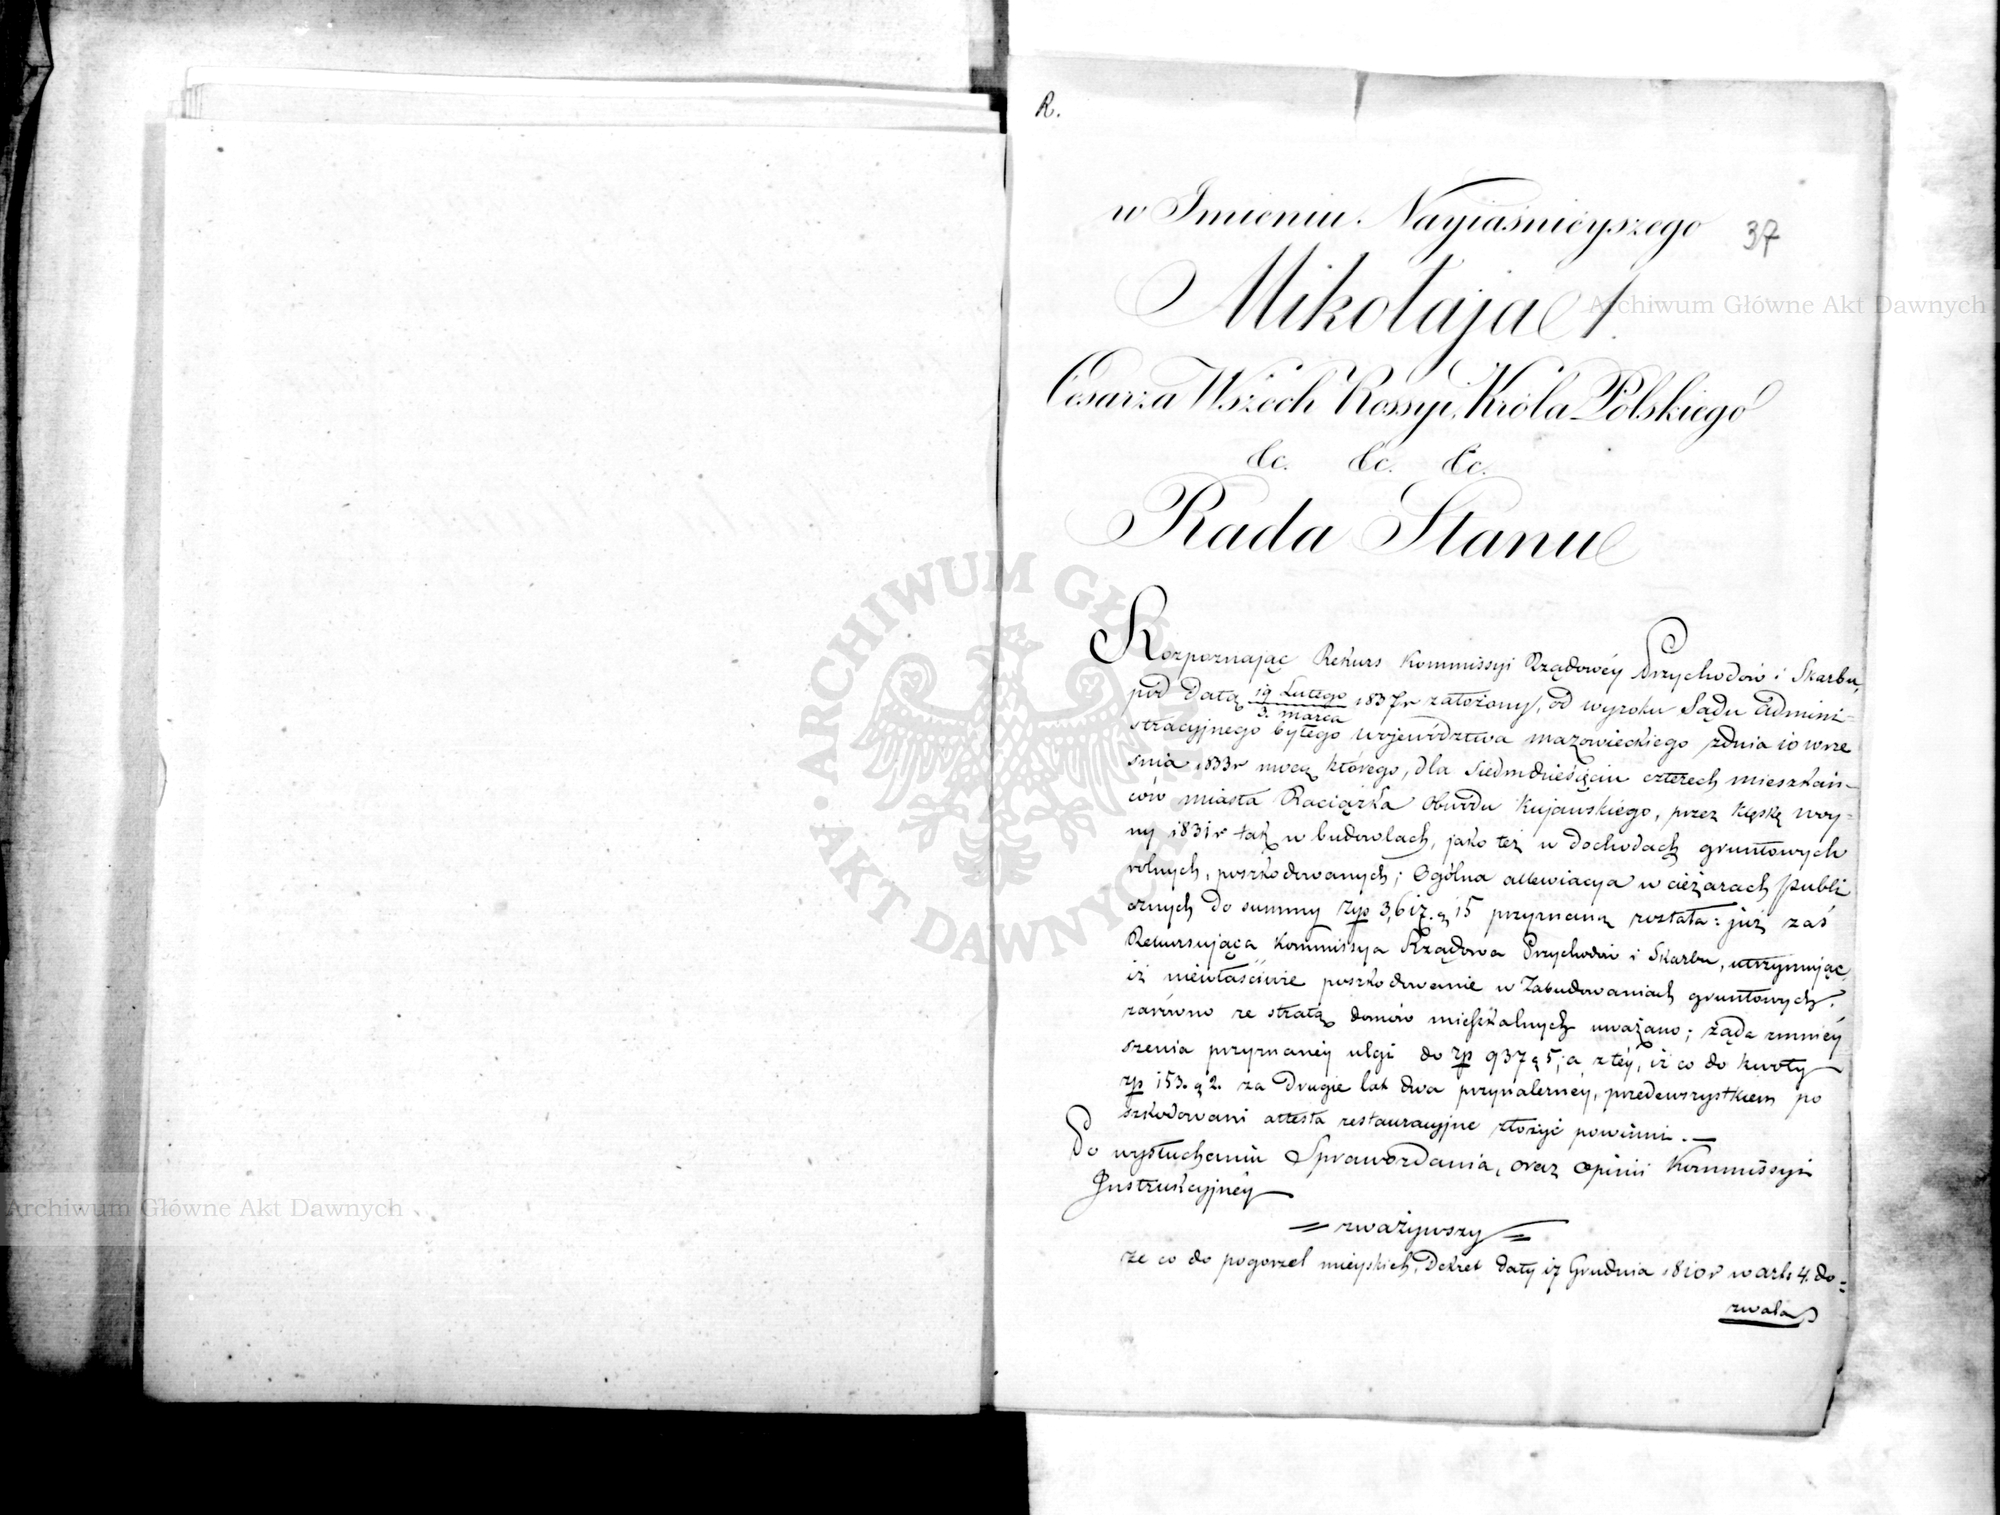 R.
w Imieniu Nayiaśnieyszego
37
Mikołaja I.
Cesarza Wszech Rossyi, Króla Polskiego
&c. &c. &c.
Rada Stanu
Rozpoznając Rekurs Kommissyi Rządowéy Przychodów i Skarbu,
pod datą 19 Lutego / 3. marca 1837 r założony, od wyroku Sądu Admini=
stracyjnego byłego województwa mazowieckiego z dnia 10 wrze
śnia 1833 r mocą którego, dla siedmdziesięciu czterech mieszkań=
ców miasta Raciążka Obwodu Kujawskiego, przez klęskę woy=
ny 1831 r tak w budowlach, jako też w dochodach gruntowych
rolnych, poszkodowanych; Ogólna allewiacya w ciężarach publi
cznych do summy Złp 3,617. g 15 przyznaną została: już zaś
Rekursująca Kommissya Rządowa Przychodów i Skarbu, utrzymując,
iż niewłaściwie poszkodowanie w Zabudowaniach gruntowych,
zarówno ze stratą domów mieszkalnych uważano; żąda zmniéy
szenia przyznanéy ulgi do złp 937 g 5; a z téy, iż co do kwoty
złp 153. g 2. za drugie lat dwa przynależnéy, przedewszystkiem po
szkodowani attesta restauracyjne złożyć powinni. —
Po wysłuchaniu Sprawozdania, oraz opinii Kommissyi
Instrukcyjnéy
= zważywszy =
że co do pogorzel mieyskich, Dekret daty 17 Grudnia 1810 r w art: 4. do=
zwala
Archiwum Główne Akt Dawnych
Archiwum Główne Akt Dawnych
ARCHIWUM GŁÓWNE AKT DAWNYCH